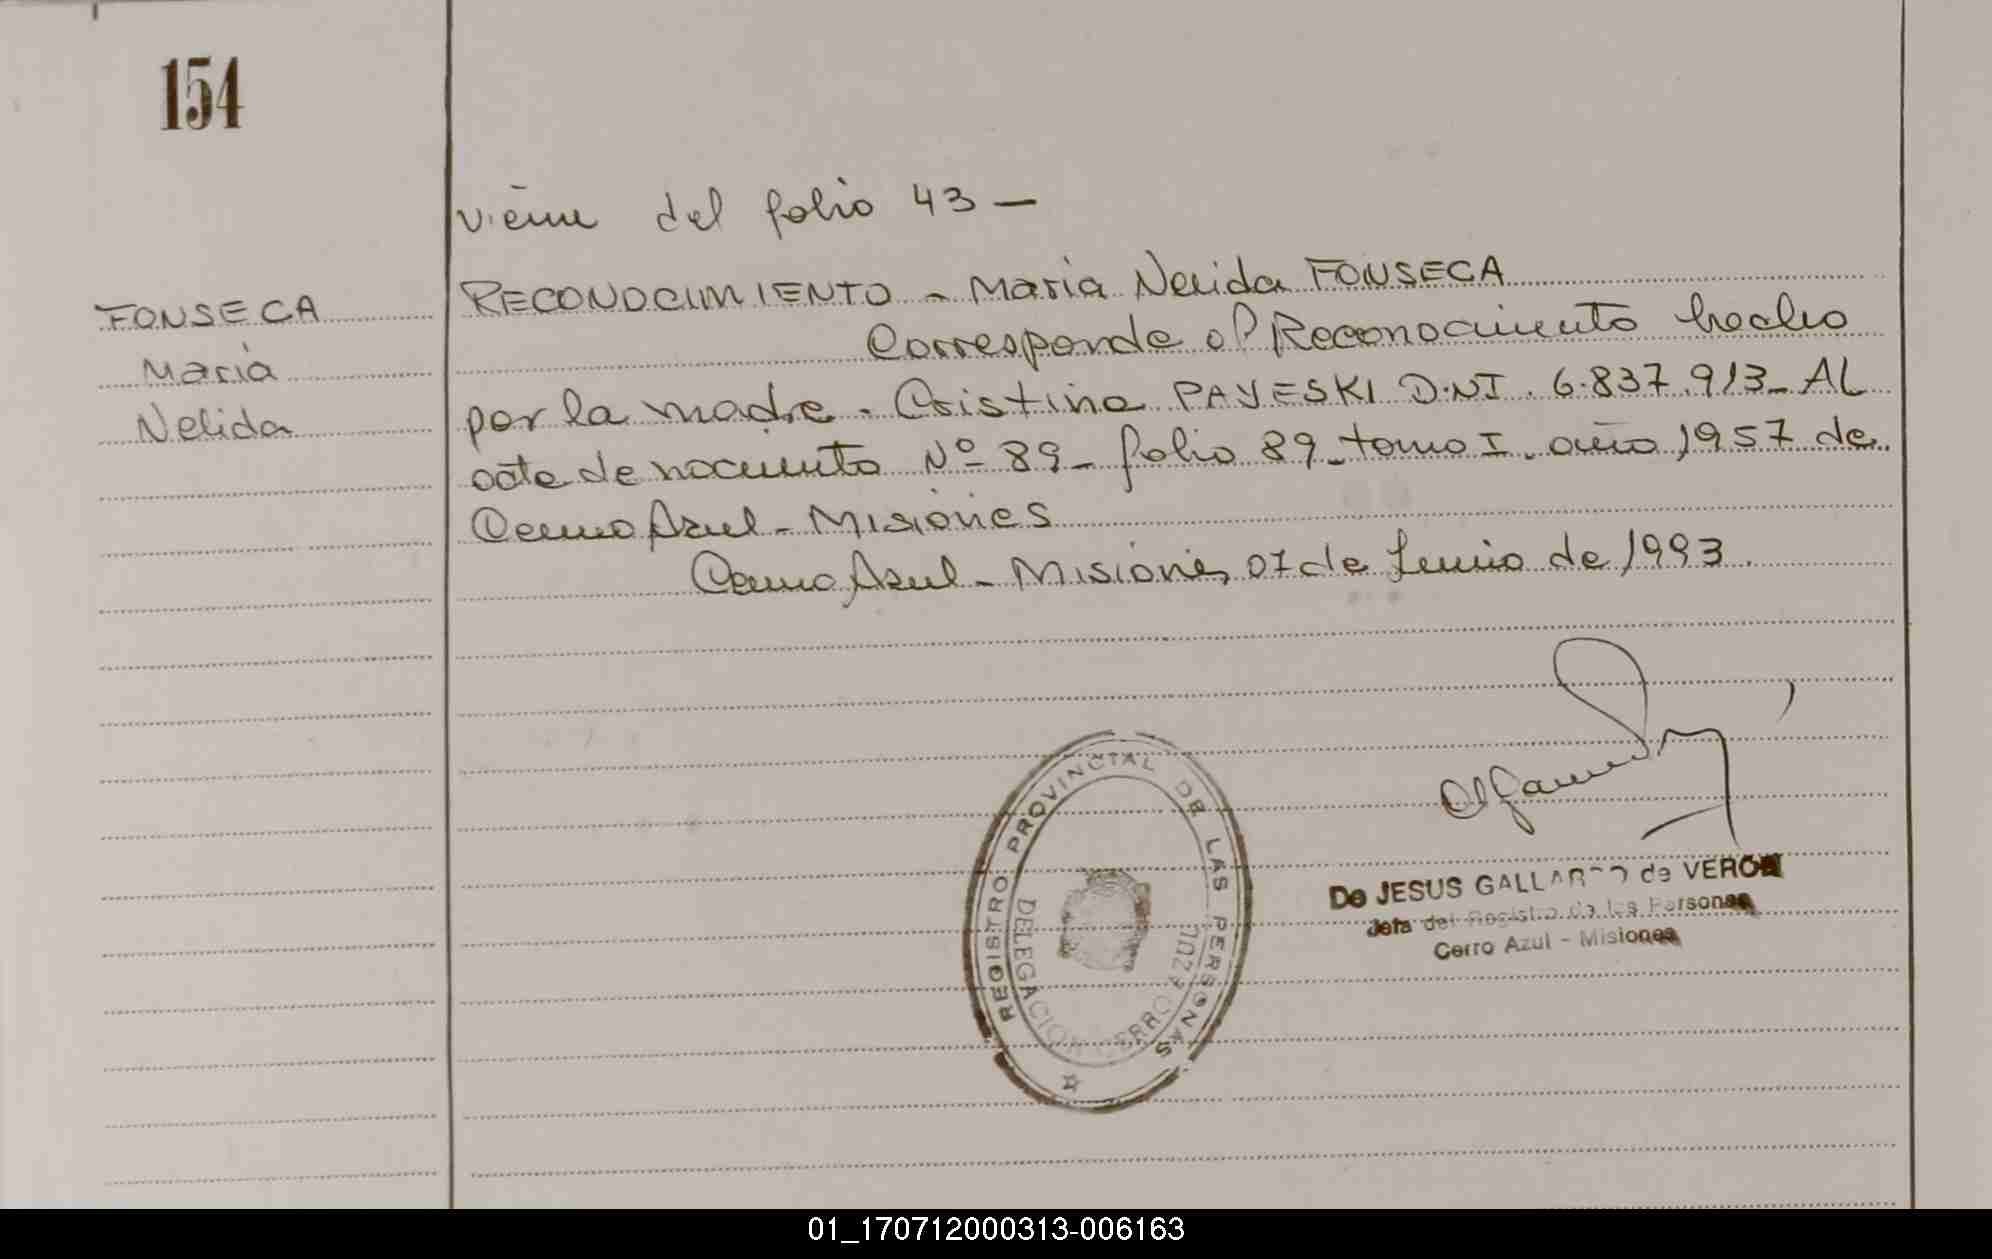 154
viene del folio 43 —
FONSECA
Maria
Nelida
RECONOCIMIENTO - Maria Nelida FONSECA
Corresponde al Reconocimiento hecho
por la madre. Cristina PAYESKI D.N.I. 6.837.913- AL
acta de nacimiento Nº 89- folio 89- tomo I. año 1957 de
Cerro Azul - Misiones
Cerro Azul - Misiones, 07 de Junio de 1993.
REGISTRO PROVINCIAL DE LAS PERSONAS
DELEGACION CERRO AZUL
De JESUS GALLARDO de VERON
Jefa del Registro de las Personas
Cerro Azul - Misiones
01_170712000313-006163